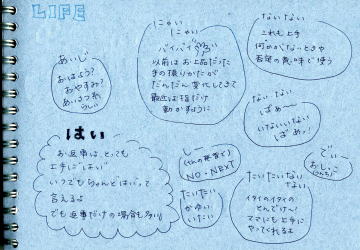 LIFE
あいじ
おはよう?
おやすみ?
あいさつれ
らしい
にゃい
にゃい
バイバイ
以前は お上品だった
手の振りかたが
だんだん変化してきて
最近は指だけ
動かすように
ない ない
これも上手
何かがなくなったときや
否定の意味で使う
ない ない
ばぁ〜
いないいない
ばぁっ!
はい
お返事は、とっても
上手に「はい」
いつでもちゃんと「はい」って
言えるよ
でも返事だけの場合も多い
しー
NO・NEXT
たいたい
かゆい
いたい
たいたい ない
ない
イタイのイタイの
とんでけ〜
ママにも上手に
やってくれるよ
でぃー
おしっこ